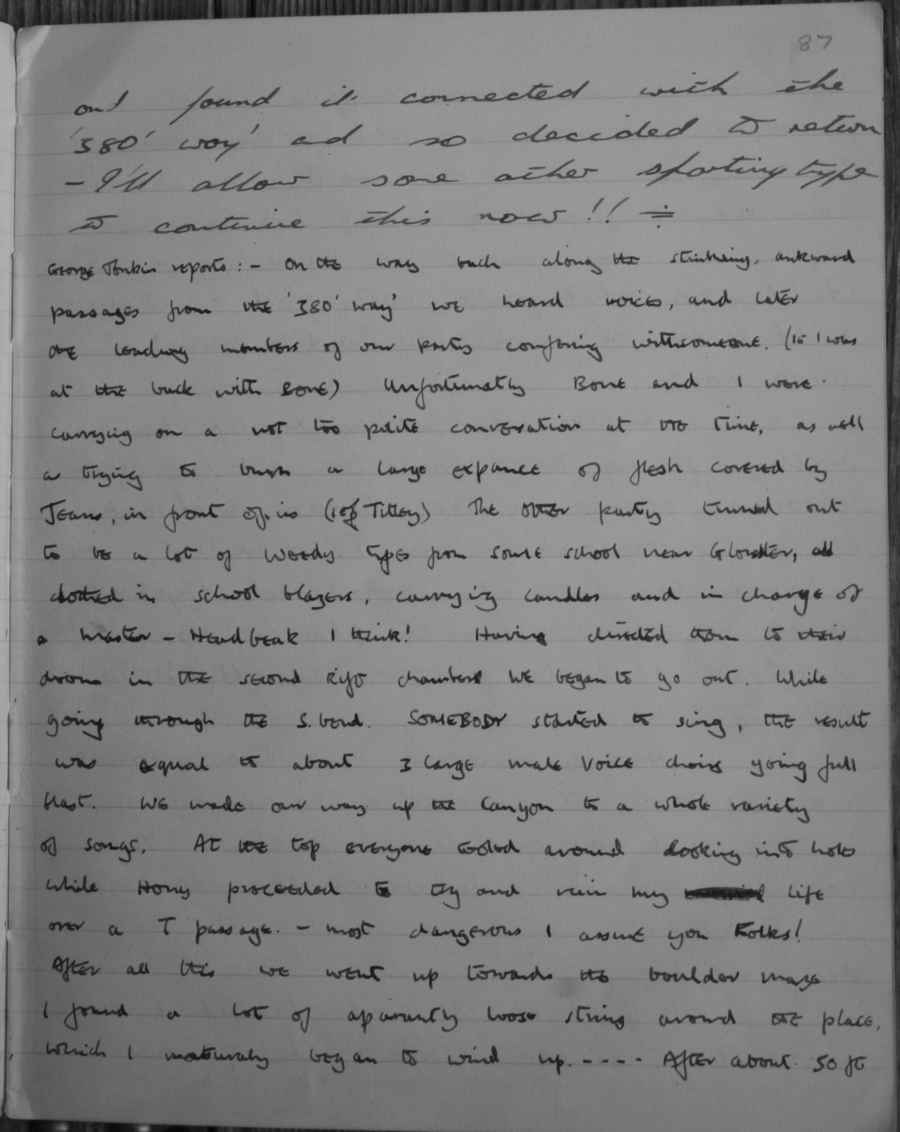 87
and found it connected with the
'380' way' ad so decided to return
- I'll allow some other sporting type
to continue this now!!
George Tonkin reports :- On the way back along the stinking, awkward
passages from the '380' way' we heard voices, and later
the leading members of our party conferring with someone. (
at the back with Bone) Unfortunatly Bone and I were
carrying on a not too polite conversation at the time, as well
as trying to push a large expance of flesh covered by
Jeans, in front of us (1 of Titley) The other party turned out
to be a lot of weedy types from some school near Gloster, all
clothed in school blazers, carrying candles and in charge of
a master - Headbeak I think! Having directed them to their
in the second chambers we began to go out. While
going through the S. bend. SOMEBODY started to sing, the result
was equal to about 3 large male voice choirs going full
blast. We made our way up the Canyon to a whole variety
of songs. At the top everyone around looking into holes
while proceeded to try and ruin my life
over a T passage. - most dangerous I assure you Folks!
After all this we went up towards the boulder maze
I found a lot of aparantly loose string around the place,
which I naturaly began to wind up. - - - - After about 50 ft